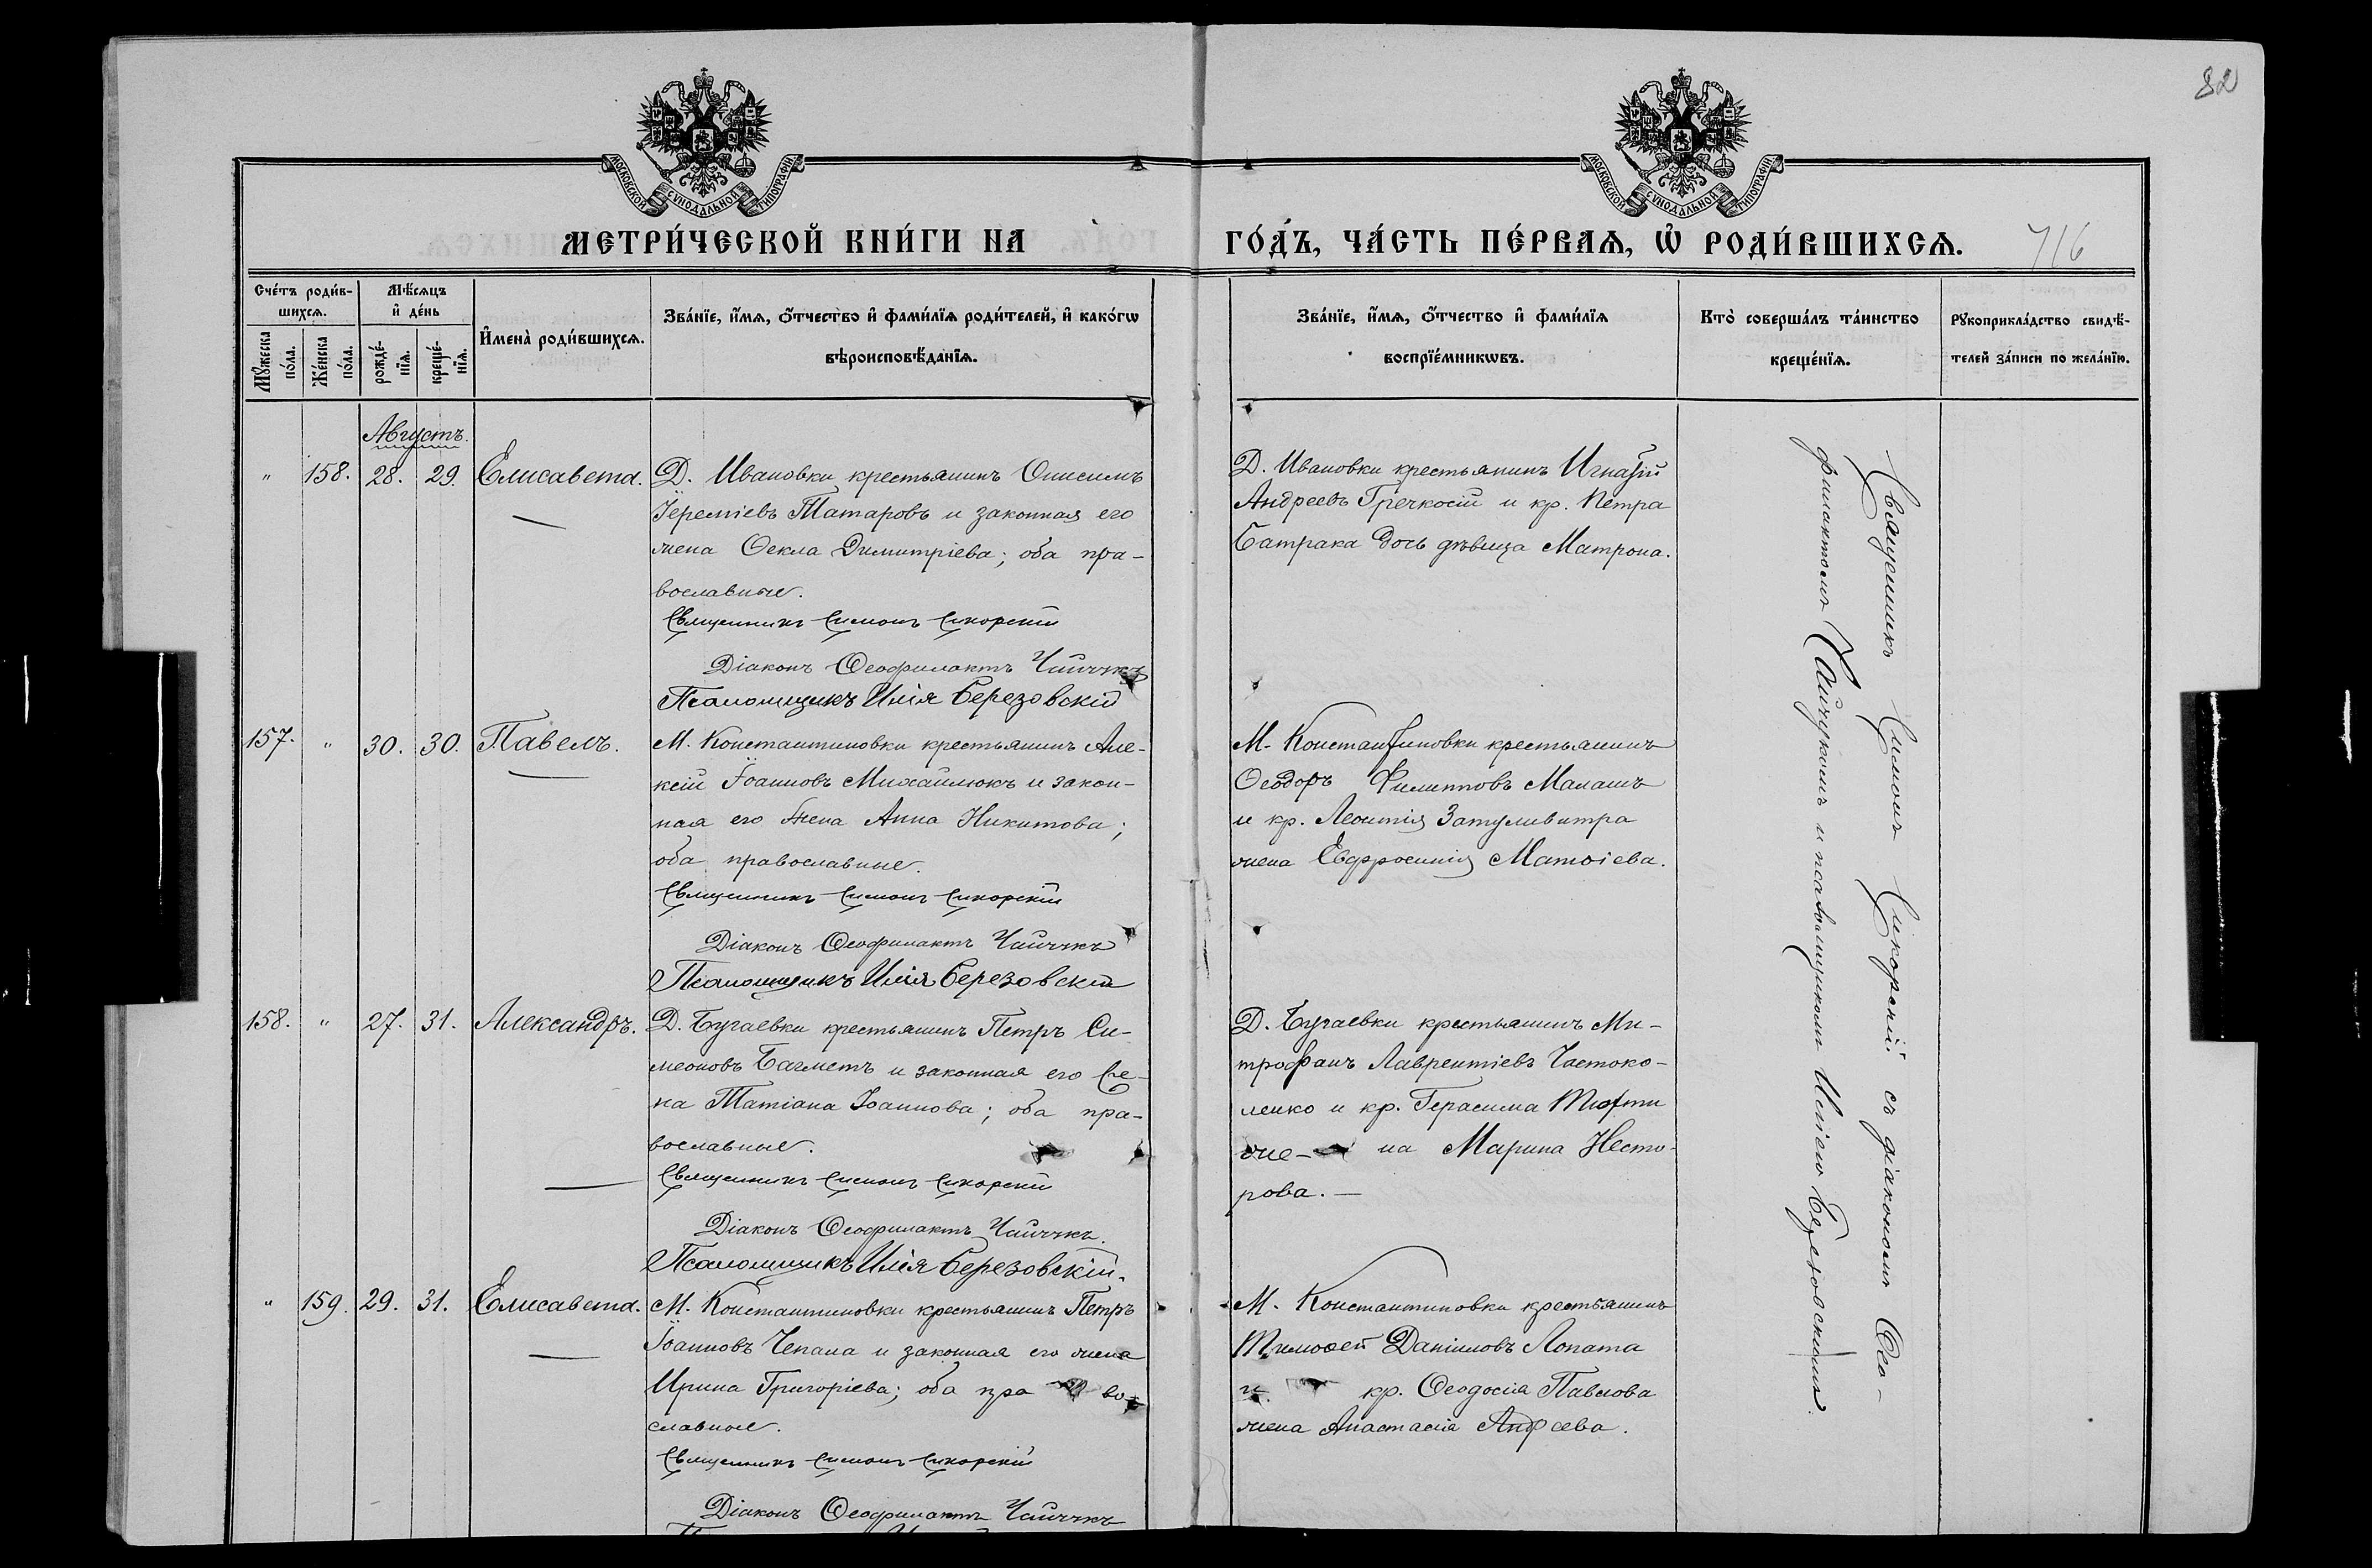 82
МОСКОВСКОЙ СѴНОДАЛЬНОЙ ТИПОГРАФІИ
МОСКОВСКОЙ СѴНОДАЛЬНОЙ ТИПОГРАФІИ
МЕТРИ́ЧЕСКОЙ КНИ́ГИ НА
ГО́ДЪ, ЧА́СТЬ ПЕ́РВАѦ, Ѡ҆ РОДИ́ВШИХСѦ.
716
Сче́тъ роди́в-
шихсѧ.
Мꙋ́жеска по́ла.
Же́нска по́ла.
Мѣ́сѧцъ
и҆ де́нь
рожде́-
нїѧ.
креще́-
нїѧ.
И҆мена̀ роди́вшихсѧ.
Зва́нїе, и҆́мѧ, ѻ҆́тчество и҆ фами́лїѧ роди́телей, и҆ како́гѡ
вѣроисповѣ́данїѧ.
Зва́нїе, и҆́мѧ, ѻ҆́тчество и҆ фами́лїѧ
воспрїе́мникѡвъ.
Кто̀ соверша́лъ та́инство
креще́нїѧ.
Рꙋкоприкла́дство свидѣ́-
телей за́писи по жела́нїю.
Августъ.
" 158. 28. 29. Елисавета.
Д. Ивановки крестьянинъ Онисимъ
Іереміевъ Татаровъ и законная его
жена Ѳекла Димитріева; оба пра-
вославные.
Священникъ Симонъ Сикорскій
Діаконъ Ѳеофилактъ Чайчукъ
Псаломщикъ Илія Березовскій
Д. Ивановки крестьянинъ Игнатій
Андреевъ Гречкосій и кр. Петра
Батрака дочь дѣвица Матрона.
157. " 30. 30. Павелъ.
М. Константиновки крестьянинъ Але-
ксій Іоанновъ Михайлюкъ и закон-
ная его жена Анна Никитова;
оба православные.
Священникъ Симонъ Сикорскій
Діаконъ Ѳеофилактъ Чайчукъ
Псаломщикъ Илія Березовскій
М. Константиновки крестьянинъ
Ѳеодоръ Филипповъ Малашъ
и кр. Леонтія Затуливитра
жена Евфросинія Матѳіева.
158. " 27. 31. Александръ.
Д. Бугаевки крестьянинъ Петръ Си-
меоновъ Багметъ и законная его же-
на Татіана Іоаннова; оба пра-
вославные.
Священникъ Симонъ Сикорскій
Діаконъ Ѳеофилактъ Чайчукъ.
Псаломщикъ Илія Березовскій.
Д. Бугаевки крестьянинъ Ми-
трофанъ Лаврентіевъ Частоко-
ленко и кр. Герасима Тюти
же- на Марина Несто-
рова.
" 159. 29. 31. Елисавета.
М. Константиновки крестьянинъ Петръ
Іоанновъ Чепала и законная его жена
Ирина Григоріева; оба пра во-
славные.
Священникъ Симонъ Сикорскій
Діаконъ Ѳеофилактъ Чайчукъ
М. Константиновки крестьянинъ
Тимоѳей Даніиловъ Лопата
и кр. Ѳеодосія Павлова
жена Анастасія Андреева.
Священникъ Симонъ Сикорскій съ діакономъ Ѳео-
филактомъ Чайчукомъ и псаломщикомъ Иліею Березовскимъ.